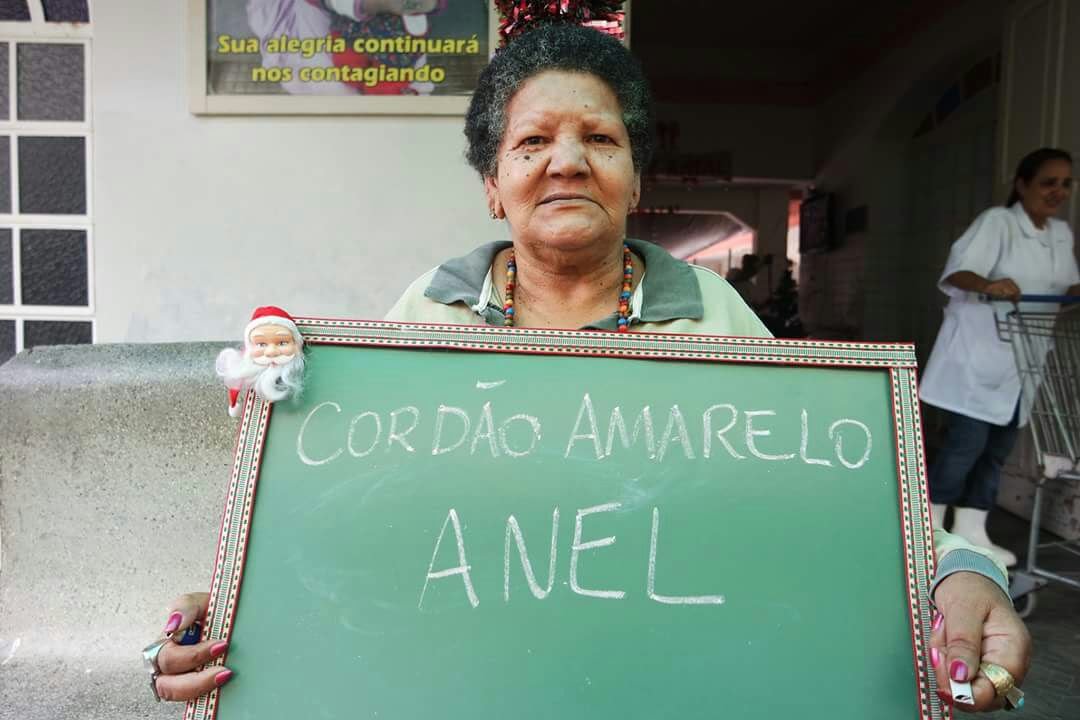 Sua alegria continuará
nos contagiando
CORDÃO AMARELO
ANEL